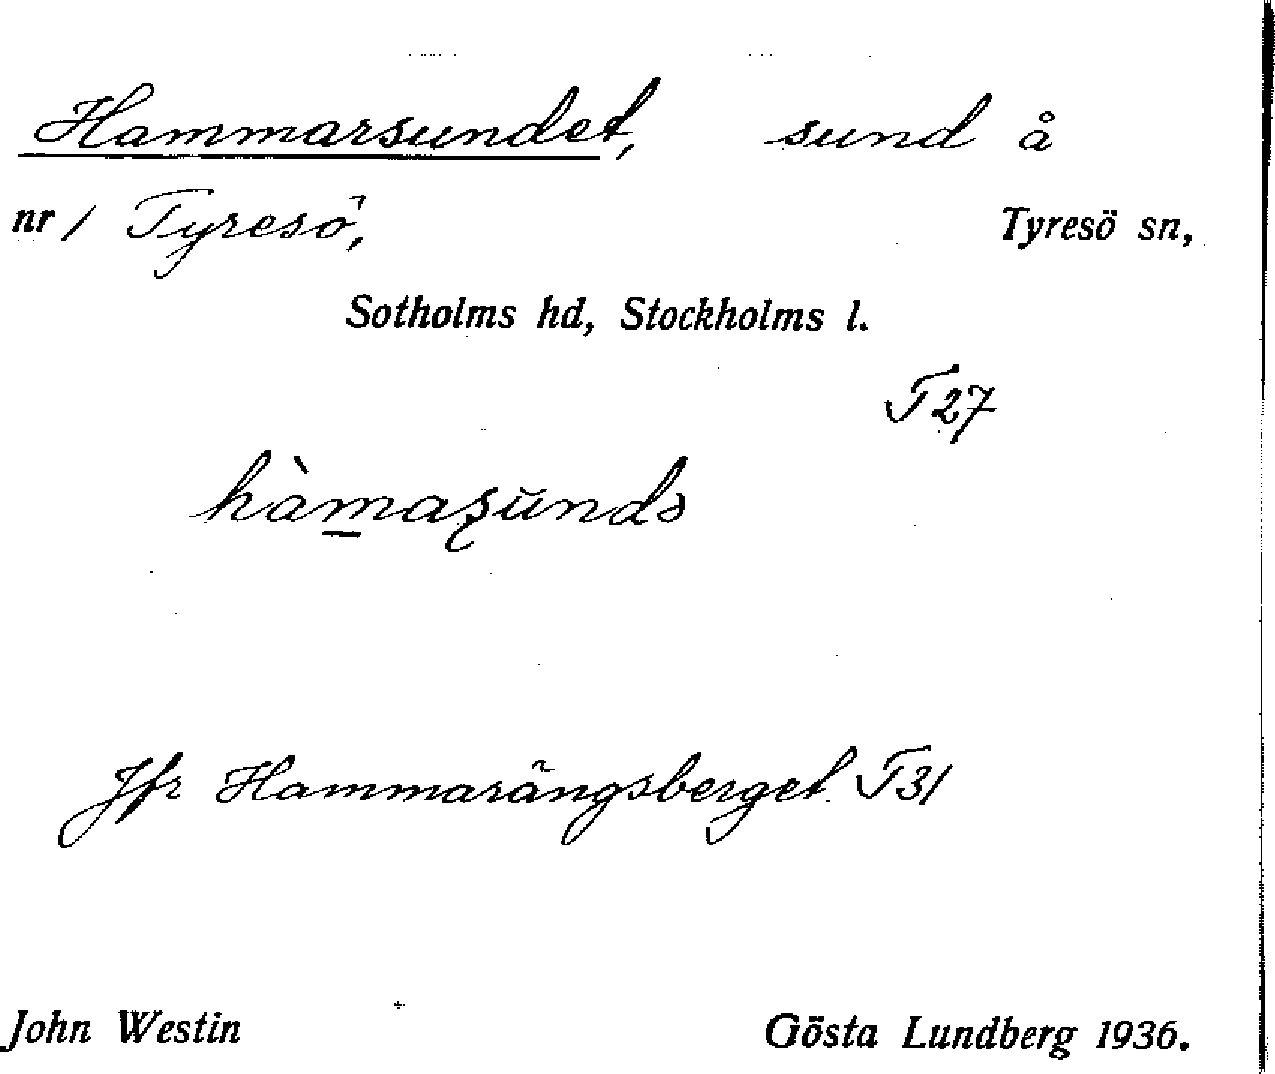 Hammarsundet, sund å
nr 1 Tyresö, Tyresö sn,
Sotholms hd, Stockholms l.
T27
hàmaʂŭndə
Jfr Hammarängsberget T31
John Westin Gösta Lundberg 1936.